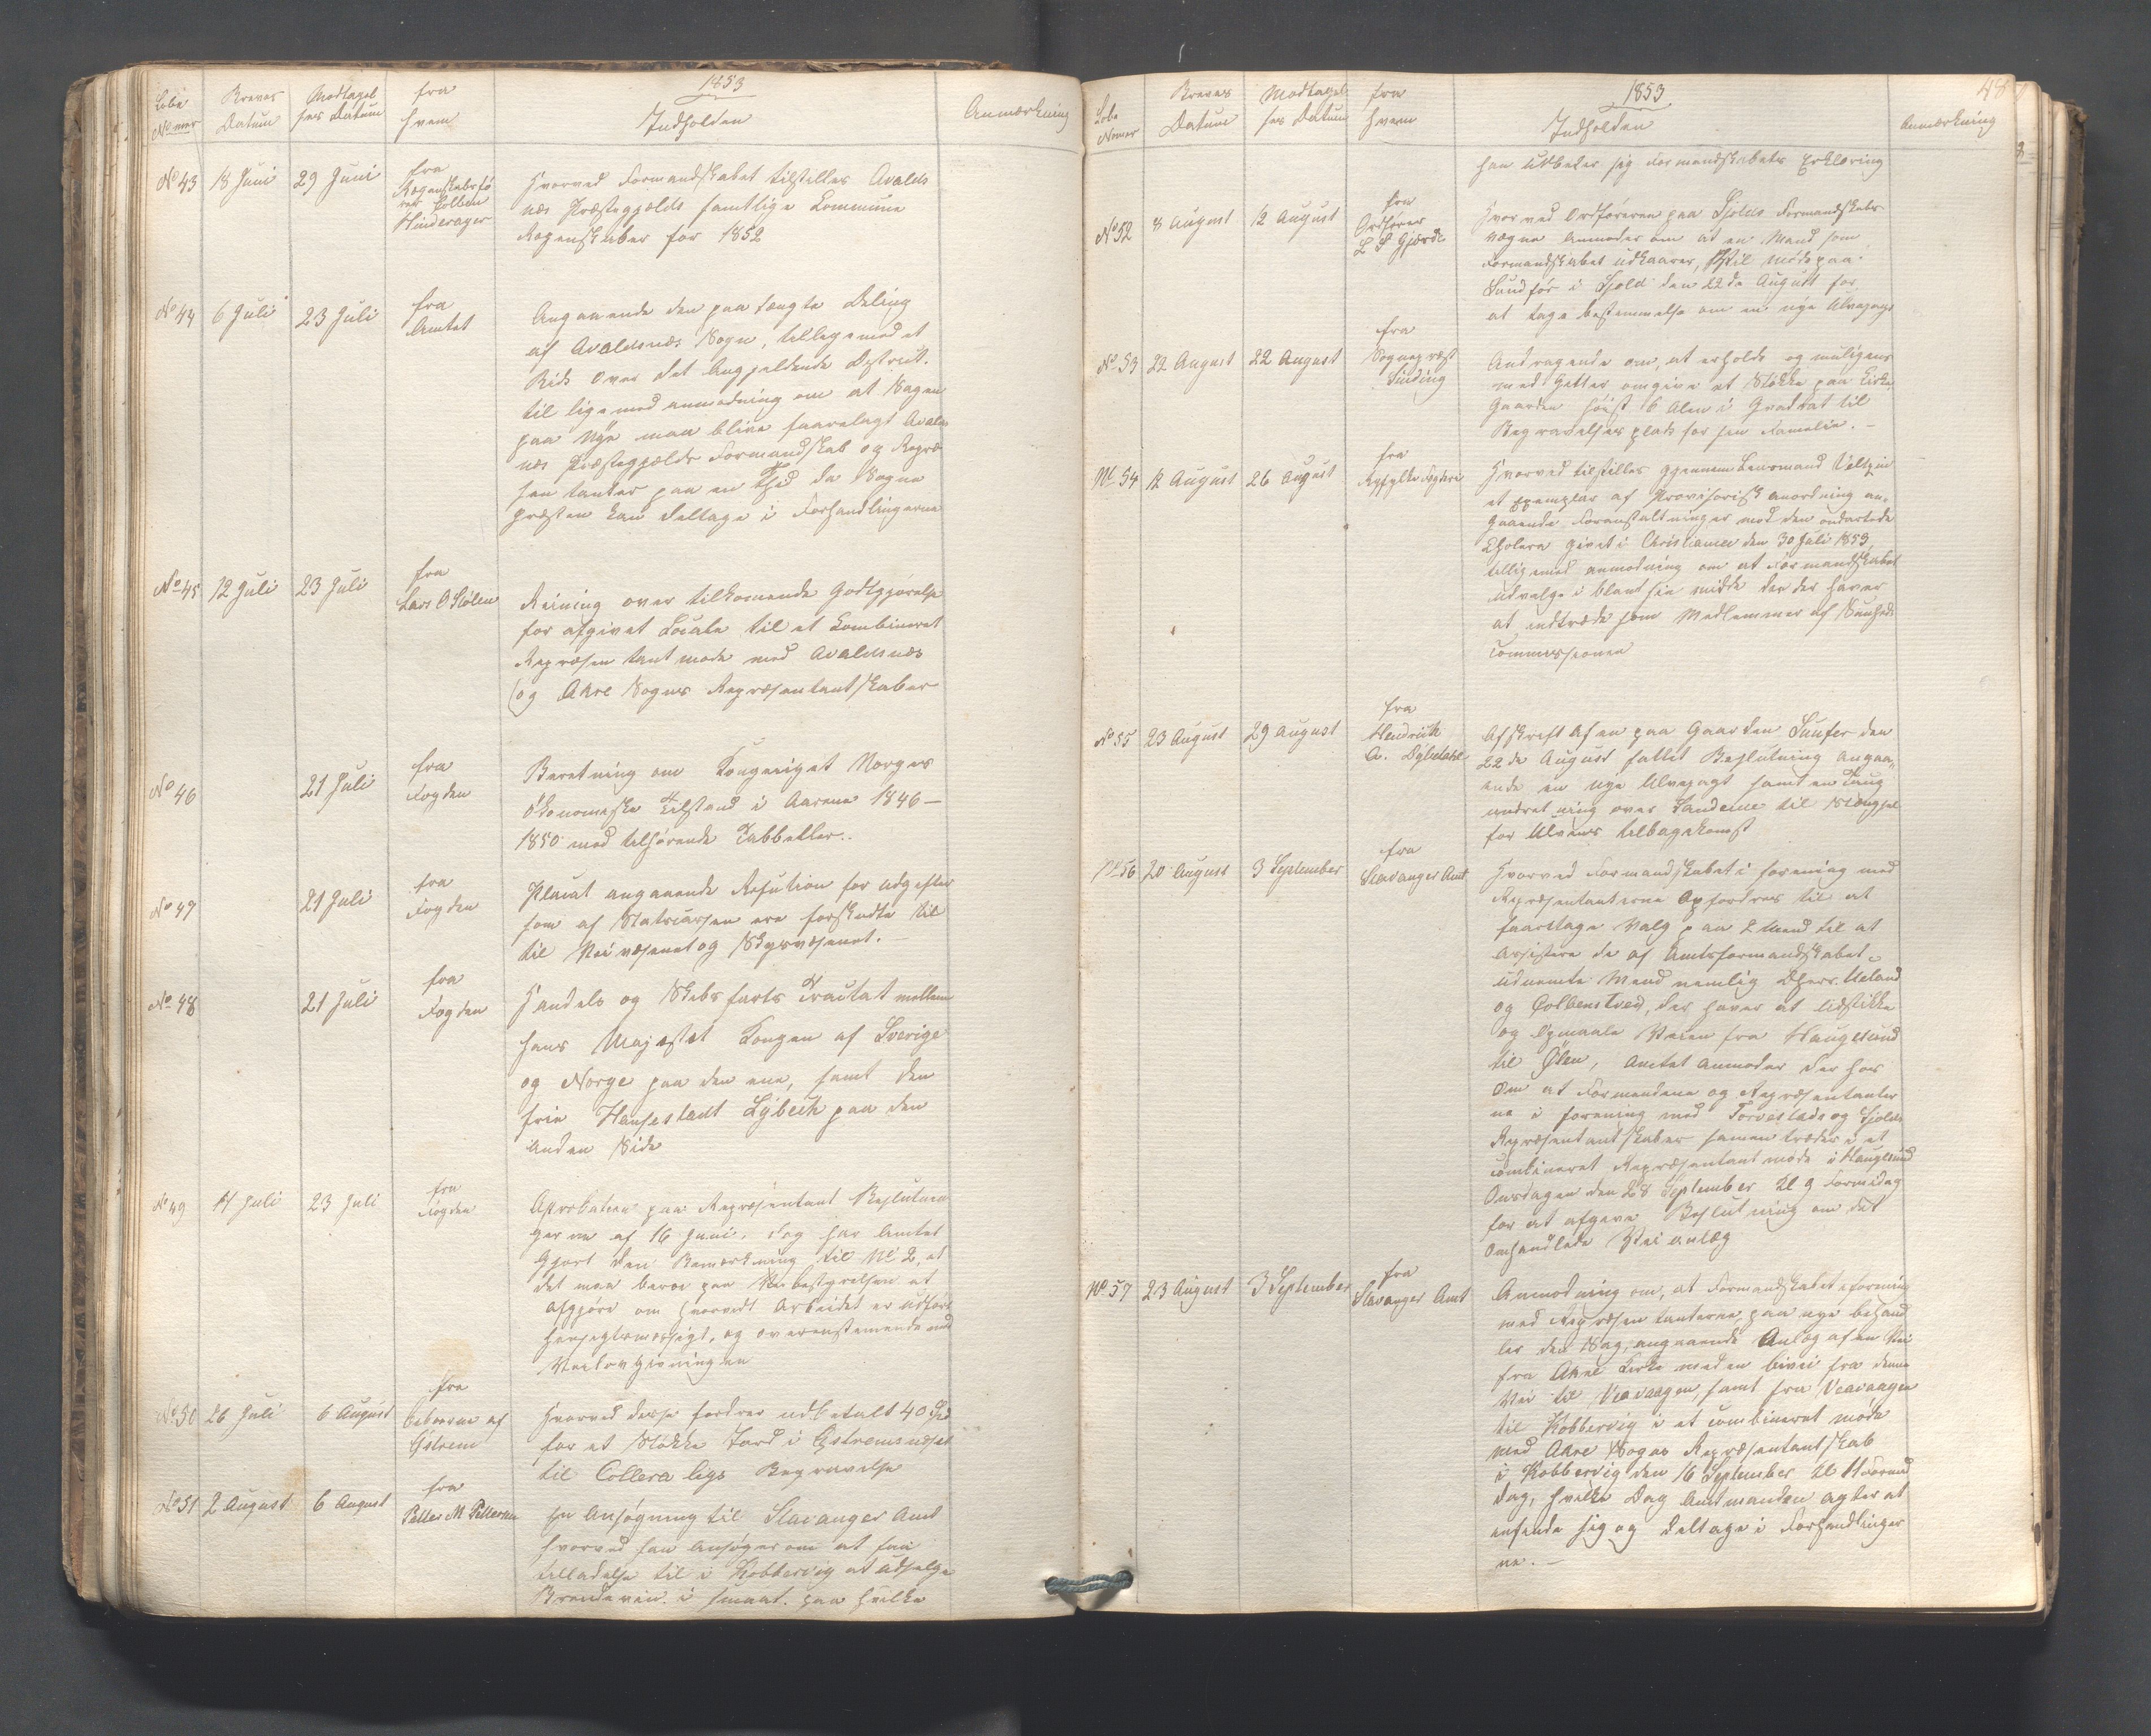 1853
Løbe Nummer
Breves Datum
Modtagelses Datum
fra hvem
Indholden
Anmærkning
No 43 18 Juni 29 Juni fra Regnskabsfø
rer Kolben
Hinderager
Hvorved Formandskabet tilstilles Avalds
nes Præstegjælds samtlige Commune
Regenskaber for 1852
No 44 6 Juli 23 Juli fra Amtet
Angaaende den paa tengte Deling
af Avaldsnæs Sogn, tillegemed et
Rids over det Angjeldende Destrict.
til lige med anmodning om at Sagen
paa nye maa blive foorelagt Avalds
næs Præstegjælds Formandskab og Repræ
sentanter paa en Thid da Sogne
præsten kan deltage i Forhandlingerne
No 45 12 Juli 23 Juli fra
Lars O Stølen
Reining over tilkomende Godtgjørelse
for afgivet Locale til et Combineret
Repræsentant møde med Avaldsnæs
og Akre Sognes Repræsentantskaber
No 46 21 Juli fra Fogden
Beretning om Kongeriget Norges
økonomiske Tilstand i Aarene 1846 —
1850 med tilhørende Tabbeller.
No 47 21 Juli fra Fogden
Placat angaaende Refution for udgefter
som af Statscassen ere forskudte til
til Veivæsenet og Skysvæsenet. —
No 48 21 Juli fra Fogden
Handels og Skibsfarts Tractat mellem
hans Majestet Kongen af Sverige
og Norge paa den ene, samt den
frie Hansestadt Lybeck paa den
anden Side
No 49 14 Juli 23 Juli fra Fogden
Aprobation paa Repræsentant Beslutnin
gerne af 16 Juni. dog har Amtet
gjort den Bemærkning til No 2, at
det maa beroe paa Veibestyrelsen at
afgjøre om hvorvidt Arbeidet er udført
hensegtsmæssigt, og overenstemende med
Veilovgivningen
No 50 26 Juli 6 August fra
beboerne af
Østrem
Hvorved disse fordrer udbetalt 40 Spd
for et Støkke Jord i Østremsneset
til Collera ligs Begravelse
No 51 2 August 6 August fra
Petter M Pettersen
en Ansøgning til Stavanger Amt
hvorved han ansøger om at faa
tilladelse til i Kobbervig at udselge
Brendevin i smaat. paa hvilke
48
1853
Løbe Nomer
Breves Datum
Modtagelses Datum
fra hvem
Indholden
Anmærkning
han udbeter sig Formandskabets Erklæring
No 52 8 August 12 August fra
Ordfører
L S Gjerde
Hvorved Ordføreren paa Sjolds Formandskabs
vegne anmoder om at en Mand som
Formandskabet udkaarer, til møde paa
Sundfør i Sjold den 22de August for
at tage bestemmelse om en nye Ulvejagt
No 53 22 August 22 August fra
Sognepræst
Sinding
Andragende om, at erholde og muligens
med Gitter omgive et Støkke paa Kirke
Gaarden høist 6 Alen i Qvadrat til
Begravelsesplads for sin Familie. —
No 54 12 August 26 August fra
Ryfylke Fogderi
Hvorved tilstilles gjennem Lensmand Veltzin
et Exemplar af Provisorisk anordning an-
gaaende Foranstaltninger mod den ondartede
Cholera givet i Christiania den 30 Juli 1853
tilligemed anmodning om at Formandskabet
udvelge i blant sin midte der der haver
at indtræde som Medlemmer af Sunheds
Commissionen
No 55 23 August 29 August fra
Hendrick
A.
Afskreft af en paa Gaarden Sunfer den
22de August fattet Beslutning angaa-
ende en nye Ulvejagt samt en Taug
indretning over Sandene til Stængsel
for Ulvenes tilbagekomst
No 56 20 August 3 September fra
Stavanger Amt
Hvorved Formandskabet i forening med
Repræsentanterne Opfordres til at
foorettage Valg paa 2 Mend til at
Assistere de af Amtsformandskabet
udnemte Mend nemlig Dhers. Ueland
og Colbenstved, der haver at Udstikke
og Opmaale Veien fra Haugesund
til Ølen, Amtet anmoder der hos
Om at Formendene og Repræsentanter
ne i forening med Torvestads og Sjolds
Repræsentantskaber samentræder i et
combineret Repræsentantmøde i Haugesund
Onsdagen den 28 September Kl 9 Formidag
for at afgeve Beslutning om det
omhandlede Vei anlæg
No 57 23 August 3 September fra
Stavanger Amt
Anmodning om, at Formandskabet i forening
med Repræsentanterne, paa nye behand
ler den Sag, angaaende Anlæg af en Vei
fra Akre Kirke med en bivei fra denne
Vei til Veavaagen, samt fra Veavaagen
til Kobbervig i et combineret møde
med Akre Sogns Repræsentantskab
i Kobbervig den 16 September Kl 4
dag, hvilke Dag Amtmanden agter at
infinde sig og deltage i Forhandlinger
ne. —